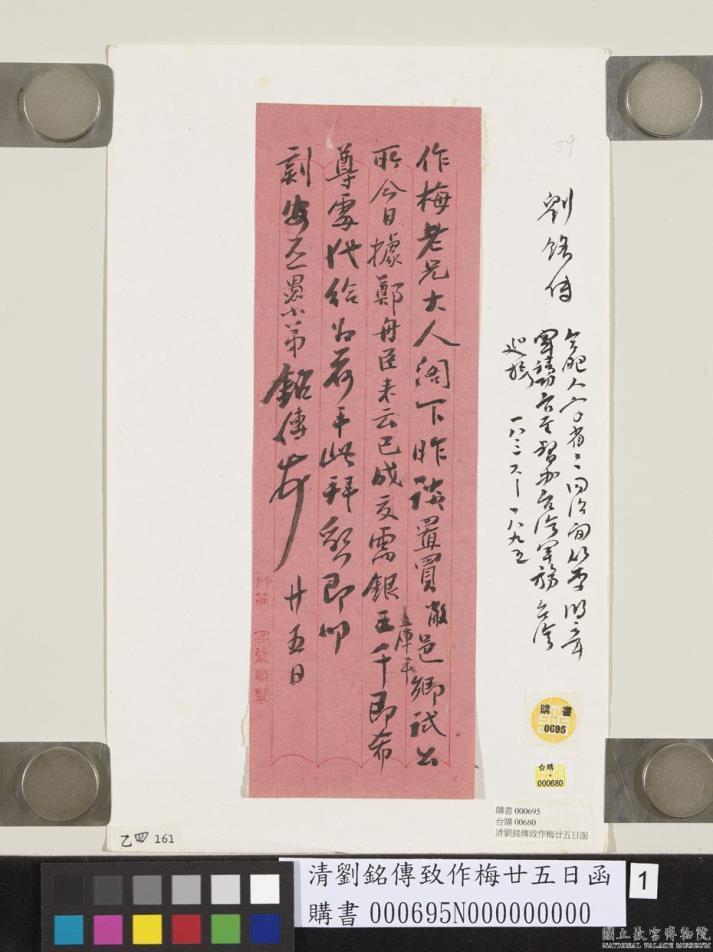 作梅老兄大人閣下昨談置買敝邑鄉試公
所今日據鄭舟臣來云已成交需銀五千即希
盖庫平
尊處代給為荷手此拜懇即卬
剴安 愚小弟銘傳頓 廿五日
雲藍閣製
59
劉銘傳
合肥人字省三同治間以李鴻章
軍補 台至督办台湾軍務台湾
巡撫
一八三六—一八九五
購書
0695
台購
000680
購書 000695
台購 00680
清劉銘傳致作梅廿五日函
乙四 161
清劉銘傳致作梅廿五日函
購書 000695N000000000
1
國立故宮博物院
NATIONAL PALACE MUSEUM